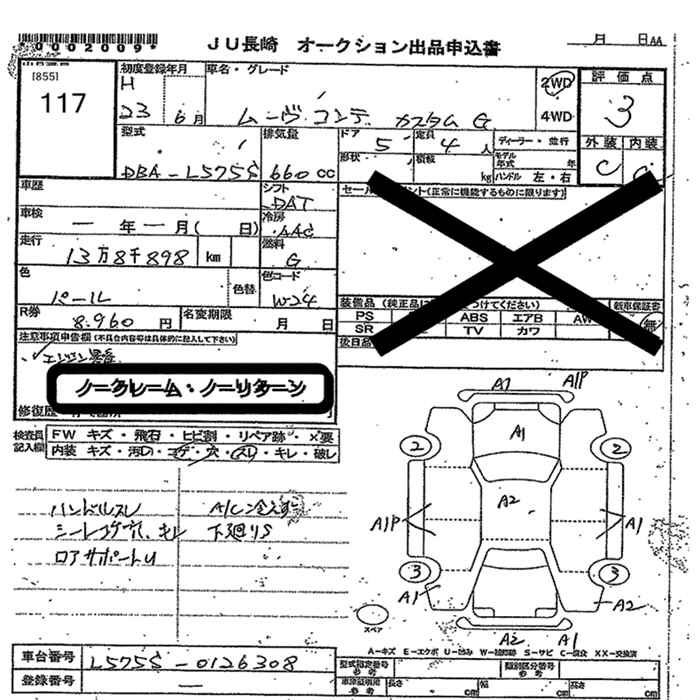 *0002009*
JU長崎 オークション出品申込書
月 日AA
[855]
117
初度登録年月
H
23 6月
車名・グレード
ムーヴ コンテ カスタム G
2WD
4WD
評価点
3
外装 内装
C C
型式
DBA-L575S
排気量
660cc
ドア
5
定員
4人
ディーラー・並行
形状
積載
kg
モデル年式 年
ハンドル 左・右
車歴
シフト
DAT
セール
ント(正常に機能するものに限ります)
車検
一年一月( 日)
冷房
AAC
走行
13万8千898 km
燃料
G
色
パール
色替
色コード
W-24
R券
8.960 円
名変期限
月 日
装備品(純正品に
つけてください)
新車保証書
PS ABS エアB AW
SR TV カワ
無
後日品
注意事項申告欄(不具合内容等は具体的に記入して下さい)
ノークレーム・ノーリターン
修復歴
検査員記入欄
FW キズ・飛石・ヒビ割・リペア跡・×要
内装 キズ・汚れ・コゲ・穴・スレ・キレ・破レ
ハンドルスレ A/C冷えず
シートコゲ穴、キレ 下廻りS
ロアサポートU
A1 A1P
A1
2 2
A2
A1P A1
3 3
A1 A2
スペア
A2 A1
A-キズ E-エクボ U-凹み W-補修跡 S-サビ C-腐食 XX-交換済
車台番号
L575S-0126308
型式指定番号
参考
類別区分番号
参考
登録番号
—
車庫証明用
参考
長さ cm
幅 cm
高さ cm